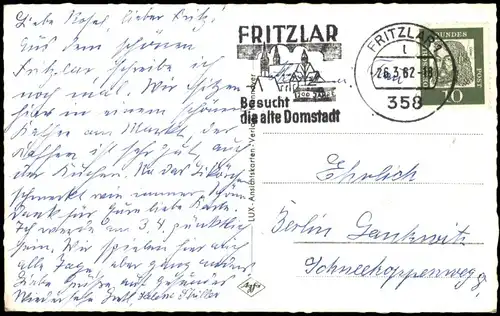 Liebe Rosel, lieber Fritz!
Aus dem schönen
Fritzlar schreibe ich
noch mal. Wir sitzen
hier in einem schönen
Kaffee am Markt, der
Kaffee ist sehr gut auch
der Kuchen. Na das
schmeckt wie immer schön
Dank für Eure liebe Karte.
Ich werde am 3.4. pünktlich
sein. Wir spielen hier auch
alle Tage, aber ganz anders
Liebe Grüße auf gesundes
Wiedersehn
FRITZLAR
1200 JAHRE
Besucht
die alte Domstadt
FRITZLAR 1
t
28.3.62-18
358
DEUTSCHE BUNDESPOST
10
LUX-Ansichtskarten-Verlag
Ehrlich
Berlin Lankwitz
Schneekoppenweg 9